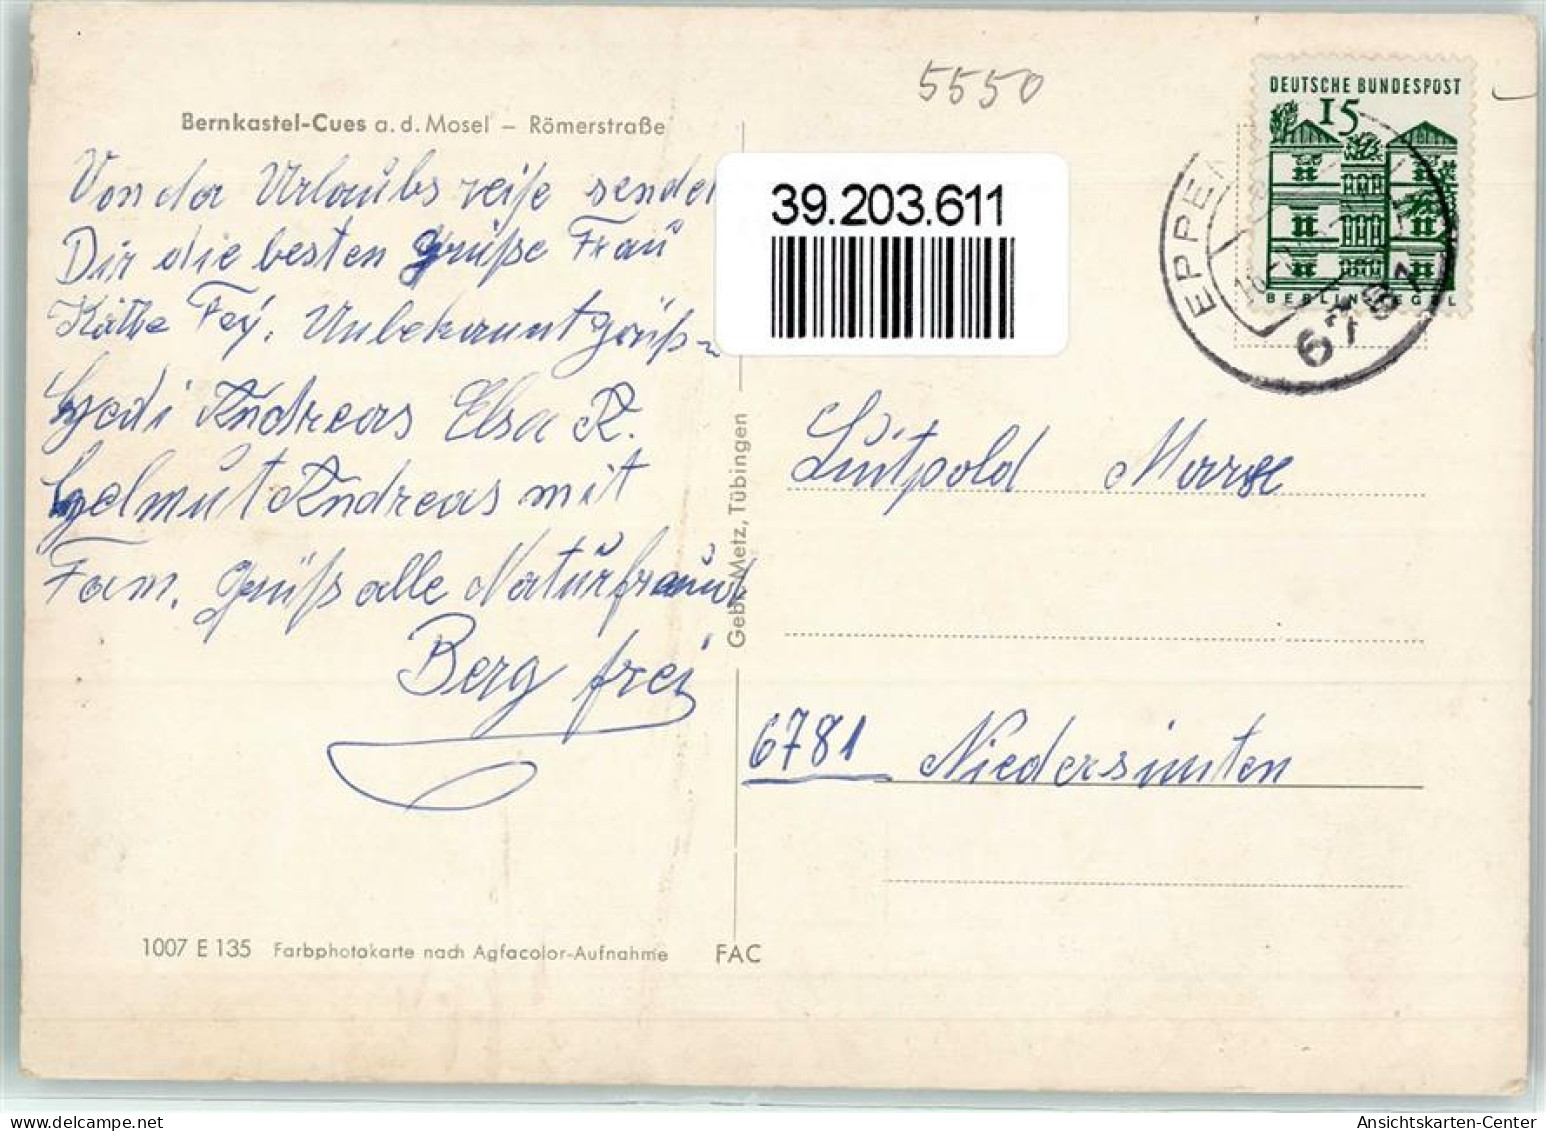 5550
DEUTSCHE BUNDESPOST
15
BERLIN TEGEL
EPPE
6781
Bernkastel-Cues a. d. Mosel – Römerstraße
39.203.611
Von da Urlaubs reise sendet
Dir die besten Grüße Frau
Käthe Fey. Unbekannt grüß-
Hedi Andreas Elsa R.
Helmut Andreas mit
Fam. Grüß alle Naturfreund
Berg frei
Gebr. Metz, Tübingen
Luitpold
6781 Niedersimten
1007 E 135 Farbphotokarte nach Agfacolor-Aufnahme FAC
Ansichtskarten-Center
oldthing.de